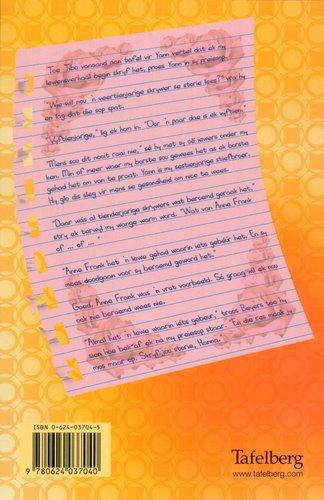 Toe Tibo vanaand aan tafel vir Yann vertel dat ek my
lewensverhaal begin skryf het, proes Yann in sy poespas.
"Wie wil nou 'n veertienjarige skrywer se storie lees?" vra hy
en lag dat die sop spat.
"Vyftienjarige," lig ek hom in. "Oor 'n paar dae is ek vyftien."
"Mens sou dit nooit raai nie," sê hy met sy oë iewers onder my
ken. Min of meer waar my borste sou gewees het as ek borste
gehad het om van te praat. Yann is my sestienjarige stiefbroer.
Hy glo dis sleg vir mens se gesondheid om nice te wees.
"Daar wás al tienderjarige skrywers wat beroemd geraak het,"
stry ek terwyl my wange warm word. "Wat van Anne Frank
of ... of ... "
"Anne Frank het 'n lewe gehad waarin iets gebéúr het. En sy
moes doodgaan voor sy beroemd geword het."
Goed, Anne Frank was 'n vrot voorbeeld. Só graag wil ek nou
ook nie beroemd wees nie.
"Almal het 'n lewe waarin iéts gebeur," troos Beyers toe hy
sien hoe bek-af ek ná my preisop staar. "En die res maak jy
mos maar op. Skryf jou storie, Hanna."
ISBN 0-624-03704-5
9 780624 037040
Tafelberg
www.tafelberg.com